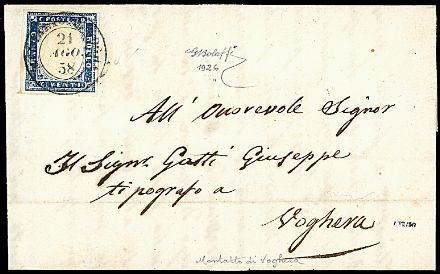 21
AGO
58
GBolaffi
1926
All' Onorevole Signor
Il Signr. Gatti Giuseppe
tipografo a
Voghera
Montalto di Voghera